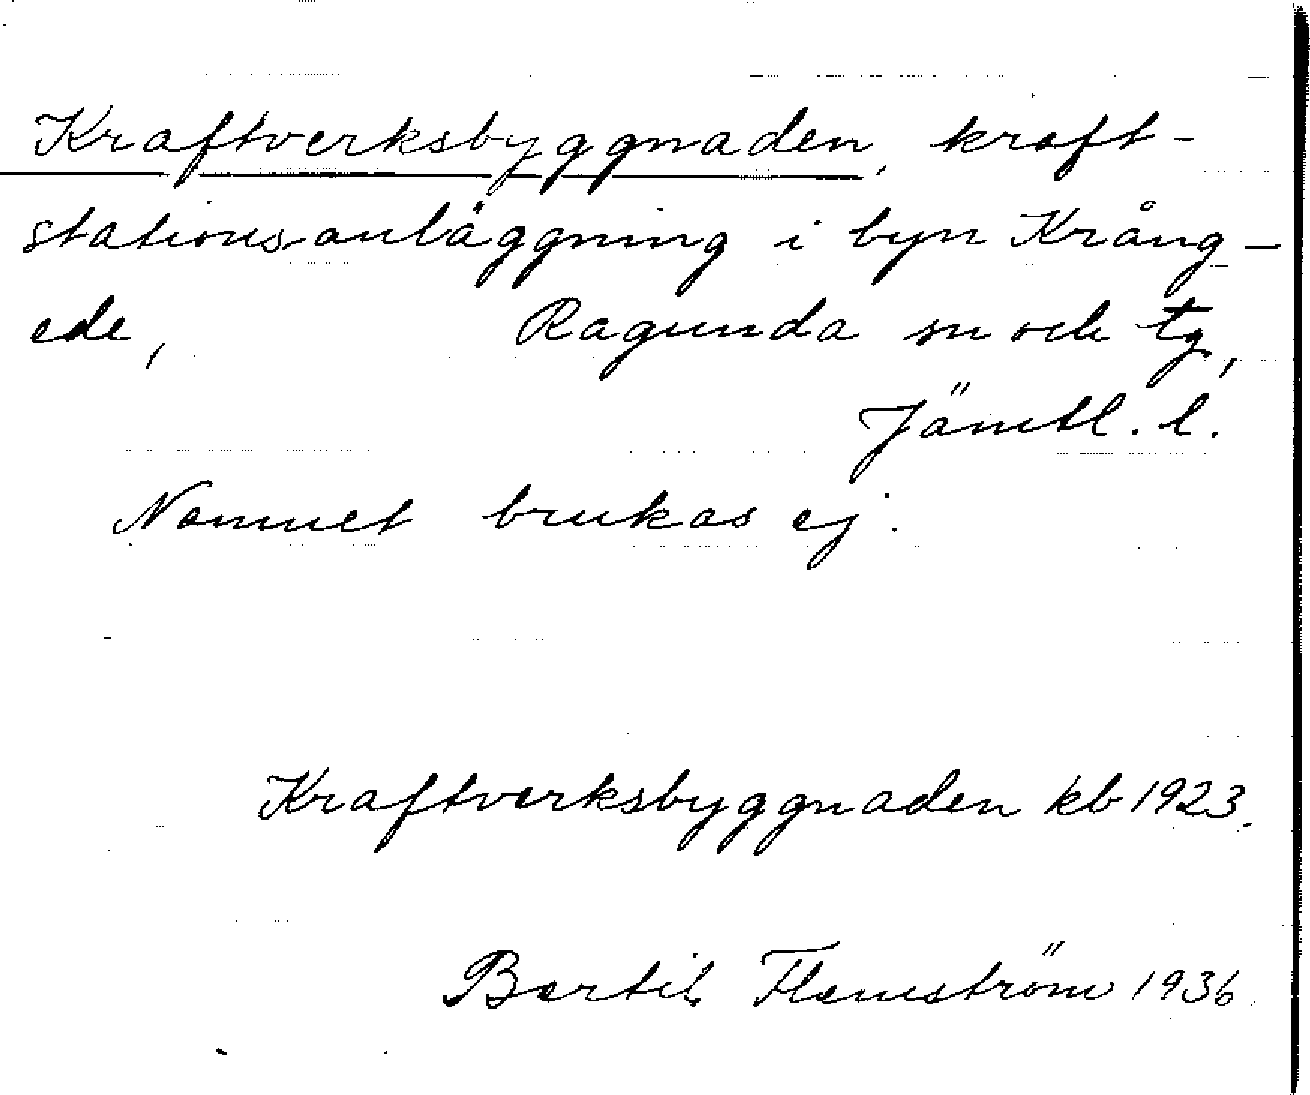 Kraftverksbyggnaden, kraft-
stationsanläggning i byn Krång-
ede, Ragunda sn och tg,
Jämtl. l.
Namnet brukas ej.
Kraftverksbyggnaden kb 1923.
Bertil Flemström 1936.